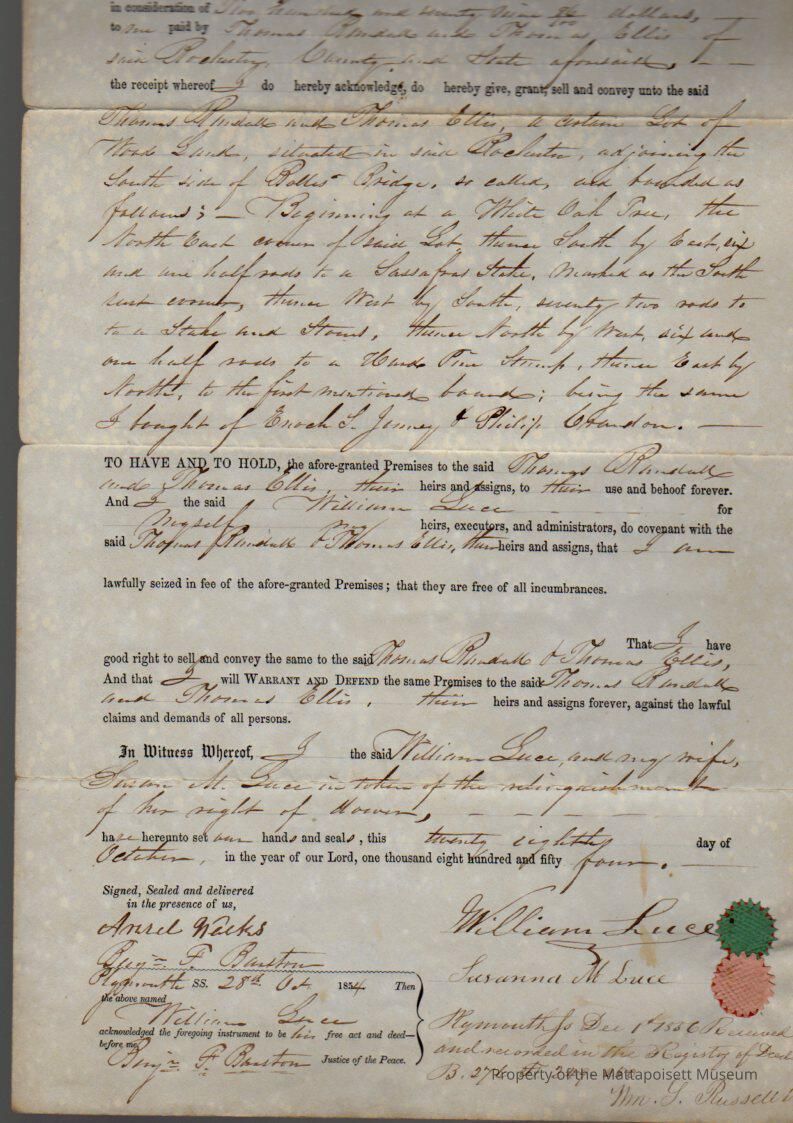 in consideration of Two hundred and seventy nine dollars,
to me paid by Thomas Randall and Thomas Ellis of
said Rochester, County and State aforesaid, — —
the receipt whereof I do hereby acknowledge, do hereby give, grant, sell and convey unto the said
Thomas Randall and Thomas Ellis, a certain Lot of
Wood Land, situated in said Rochester, adjoining the
South side of Bridge, so called, and bounded as
follows; — Beginning at a White Oak Tree, the
North East corner of said Lot, thence South by East, six
and one half rods to a Sassafras Stake, marked as the South
east corner, thence West by South, seventy two rods to
to a Stake and Stones, thence North by West, six and
one half rods to a Hard Pine Stump, thence East by
North, to the first mentioned bound; being the same
I bought of Enoch S. Jenney & Philip Crandon. —
TO HAVE AND TO HOLD, the afore-granted Premises to the said Thomas Randall
and Thomas Ellis their heirs and assigns, to their use and behoof forever.
And I the said William Luce for
myself my heirs, executors, and administrators, do covenant with the
said Thomas Randall & Thomas Ellis, their heirs and assigns, that I am
lawfully seized in fee of the afore-granted Premises; that they are free of all incumbrances.
That I have
good right to sell and convey the same to the said Thomas Randall & Thomas Ellis,
And that I will WARRANT AND DEFEND the same Premises to the said Thomas Randall
and Thomas Ellis, their heirs and assigns forever, against the lawful
claims and demands of all persons.
In Witness Whereof, I the said William Luce, and my wife,
Susan M. Luce in token of the relinquishment
of her right of dower,
have hereunto set our hands and seals, this twenty eighth day of
October, in the year of our Lord, one thousand eight hundred and fifty four. —
Signed, Sealed and delivered
in the presence of us,
Ansel Weeks
Benjn F. Barstow
William Luce
Susanna M Luce
Plymouth SS. 28th Oct. 1854 Then
the above named
William Luce
acknowledged the foregoing instrument to be his free act and deed—
before me,
Benjn F. Barstow Justice of the Peace.
Plymouth ss Dec 1st 1856 Received
and recorded in the Registry of Deeds
B. 274
Wm. S. Russell
Property of the Mattapoisett Museum